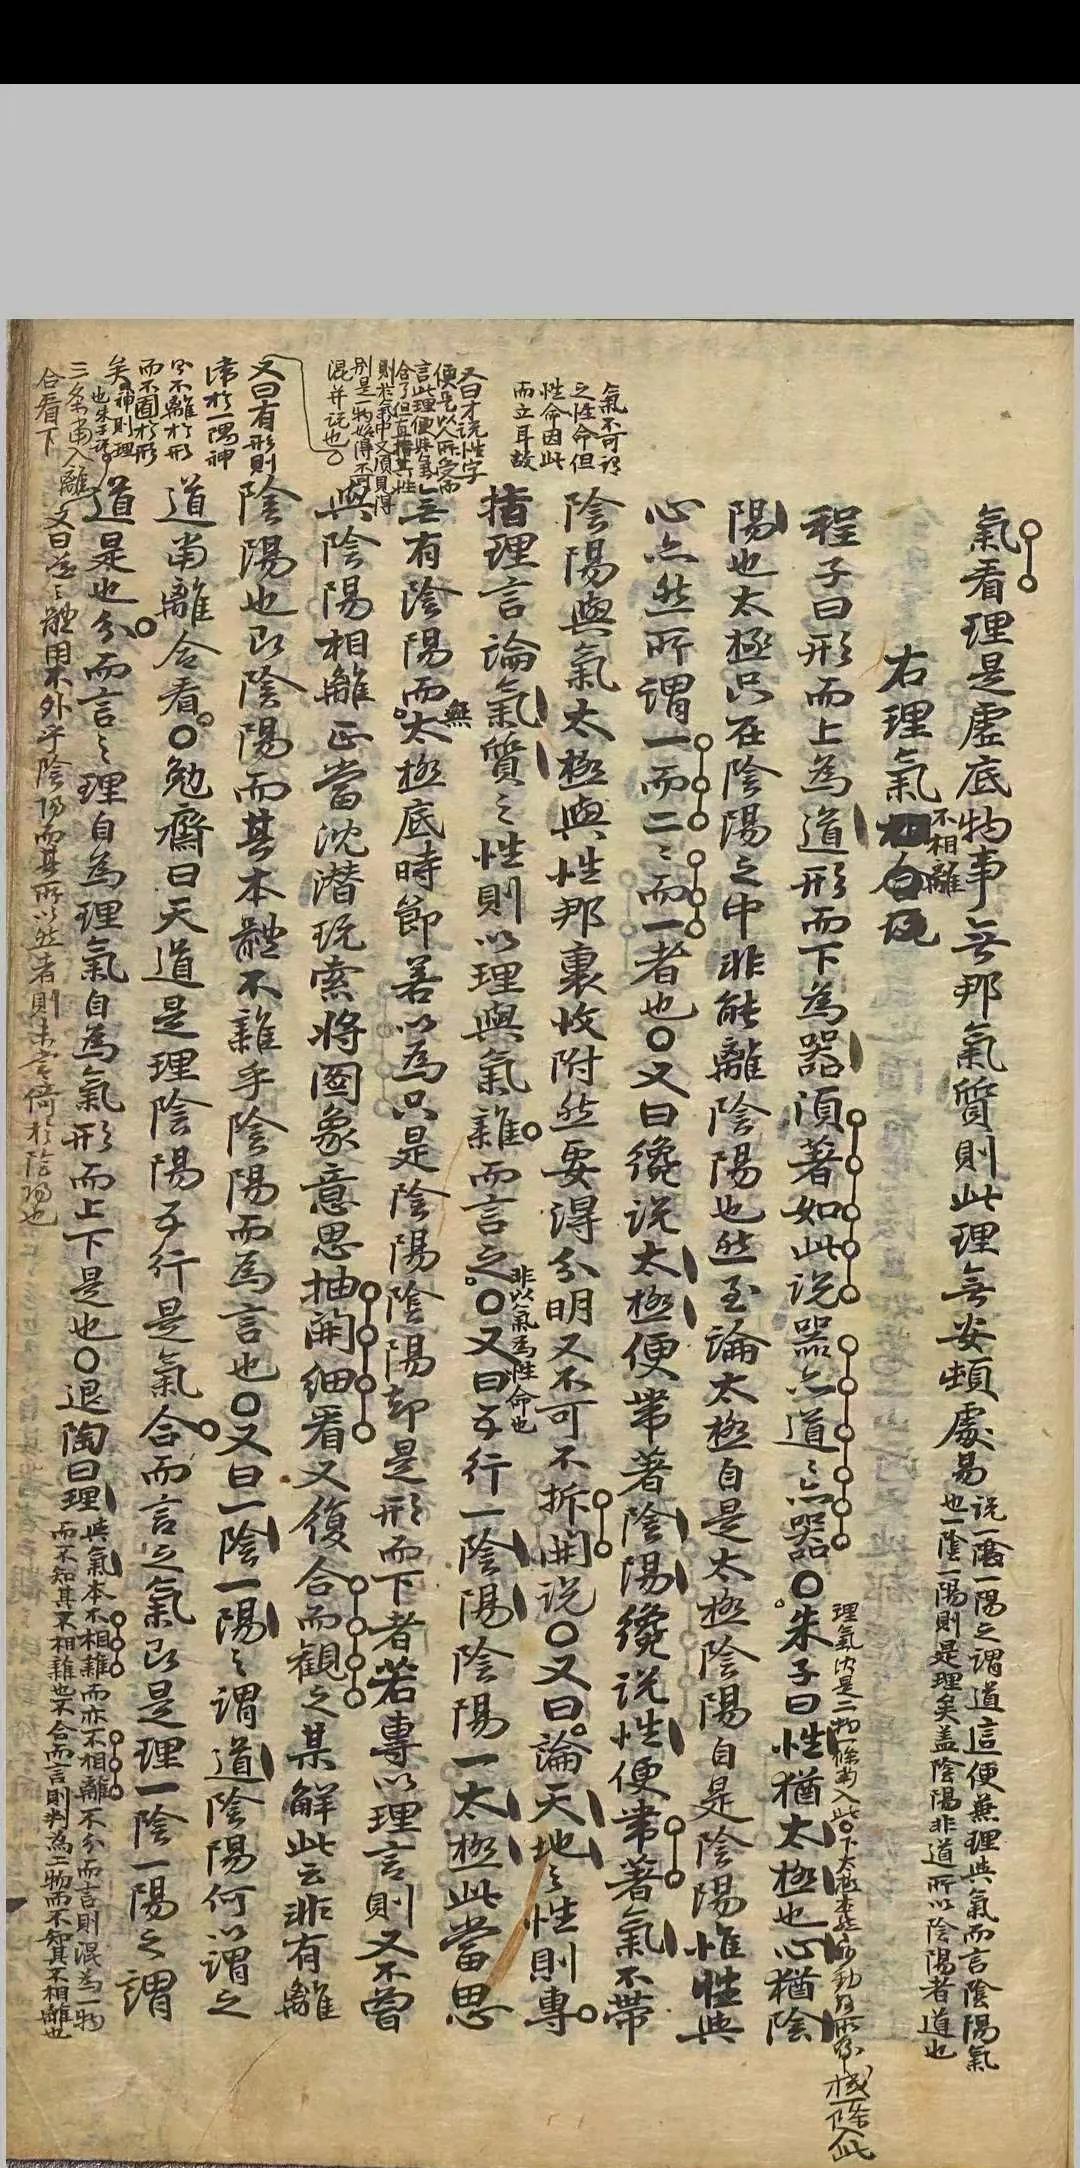 氣看理是虛底物事無那氣質則此理無安頓處易
說一陰一陽之謂道這便兼理與氣而言陰陽氣
也一陰一陽則是理矣盖陰陽非道所以陰陽者道也
右理氣
不相離
程子曰形而上為道形而下為器須著如此說器亦道〻亦器〇朱子曰性猶太極也心猶陰
理氣決是二物一條當入此〇下太極
陽也太極只在陰陽之中非能離陰陽也然至論太極自是太極陰陽自是陰陽惟性與
心亦然所謂一而二〻而一者也〇又曰纔說太極便帶著陰陽纔說性便帶著氣不帶
陰陽與氣太極與性那裏收附然要得分明又不可不拆開說〇又曰論天地〻性則專
指理言論氣質〻性則以理與氣雜而言之〇又曰五行一陰陽陰陽一太極此當思
非以氣為性命也
氣不可謂
之性命但
性命因此
而立耳故
無有陰陽而無太極底時節若以為只是陰陽陰陽却是形而下者若專以理言則又不曾
又曰才說性字
便是以人所受而
言此理便與氣
合了但直指其性
則於氣中又須見得
別是一物始得不可
混并說也〇
與陰陽相離正當沈潜玩索將圖象意思抽開細看又復合而觀之某解此云非有離
陰陽也即陰陽而其本體不雜乎陰陽而為言也〇又曰一陰一陽〻謂道陰陽何以謂之
又曰有形則
滯於一隅神
則不離於形
而不囿於形
矣
道當離合看〇勉齋曰天道是理陰陽五行是氣合而言之氣即是理一陰一陽之謂
道是也分而言〻理自為理氣自為氣形而上下是也〇退陶曰理
與氣本不相雜而亦不相離不分而言則混為一物
而不知其不相雜也不合而言則判為二物而不知其不相離也
三條當入離
合看下
又曰道〻體用不外乎陰陽而其所以然者則未嘗倚於陰陽也